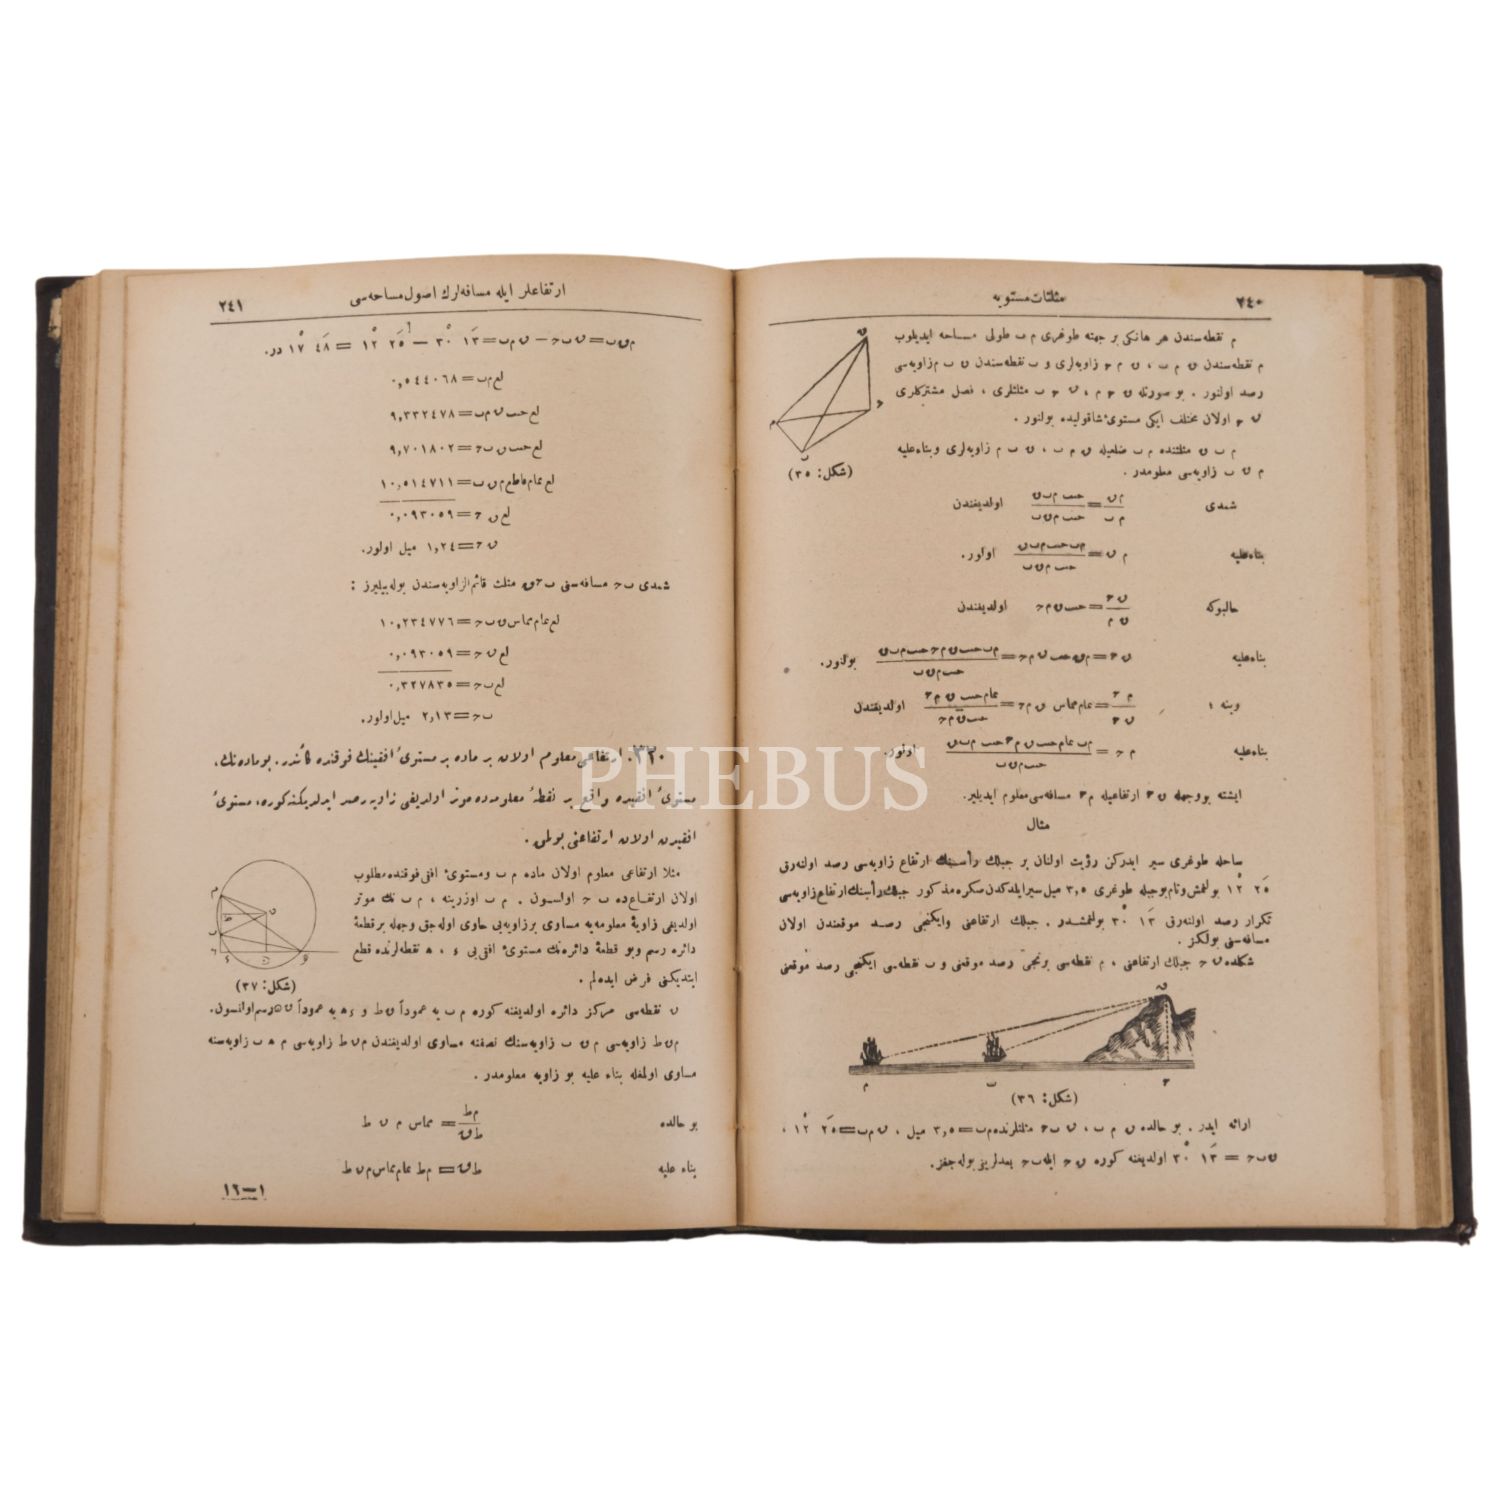 ٢٤٠
مثلثات مستویه
م نقطه‌سندن هر هانکی بر جهته طوغری م ب طولی مساحه ایدیلوب
م نقطه‌سندن ں م ب ، ں م ح زاویه‌لری و ب نقطه‌سندن ں ب م زاویه‌سی
رصد اولنور . بو صورتله ں ح م ، ں ح ب مثلثلری ، فصل مشترکلری
ں ح اولان مختلف ایکی مستوی‌ٔ شاقولیده بولنور .
م ب ں مثلثنده م ب ضلعیله ں م ب ، ں ب م زاویه‌لری وبناء علیه
م ں ب زاویه‌سی معلومدر .
(شکل : ٣٥)
شمدی
اولدیغندن
بناء علیه
اولور .
حالبوکه
اولدیغندن
بناء علیه
بولنور .
وینه :
اولدیغندن
بناء علیه
اولور .
ایشته بو وجهله ں ح ارتفاعیله م ح مسافه‌سی معلوم ایدیلیر .
مثال
ساحله طوغری سیر ایدرکن رؤیت اولنان بر جبلك رأسنك ارتفاع زاویه‌سی رصد اولنه‌رق
٢٥َ ١٢ْ بولنمش وتام بو جبله طوغری ٣,٥ میل سیر ایلدکدن صکره مذکور جبلك رأسنك ارتفاع زاویه‌سی
تکرار رصد اولنه‌رق ١٣َ ٣٠ْ بولنمشدر . جبلك ارتفاعنی وایکنجی رصد موقعندن اولان
مسافه‌سنی بولکز .
شکلده ں ح جبلك ارتفاعنی ، م نقطه‌سی برنجی رصد موقعنی و ب نقطه‌سی ایکنجی رصد موقعنی
م ب ح
(شکل : ٣٦)
ارائه ایدر . بو حالده ں م ب ، ں ب ح مثلثلرنده م ب = ٣,٥ میل ، ں م ب = ٢٥َ ١٢ْ ،
ں ب ح = ١٣َ ٣٠ْ اولدیغنه کوره ں ح ایله ب ح بعدلرینی بوله‌جغز .
ارتفاعلر ایله مسافه‌لرك اصول مساحه‌سی
٢٤١
م ں ب = ں ب ح − ں م ب = ١٣َ ٣٠ْ − ٢٥َ ١٢ْ = ٤٨َ ١٧ْ در .
لع م ب = ٠,٥٤٤٠٦٨
لع جیب ں م ب = ٩,٣٣٢٤٧٨
لع جیب ں ب ح = ٩,٧٠١٨٠٢
لع تمام قاطع م ں ب = ١٠,٥١٤٧١١
لع ں ح = ٠,٠٩٣٠٥٩
ں ح = ١,٢٤ میل اولور .
شمدی ب ح مسافه‌سنی ب ح ں مثلث قائم الزاویه‌سندن بوله‌بیلیرز :
لع تمام مماس ں ب ح = ١٠,٢٣٤٧٧٦
لع ں ح = ٠,٠٩٣٠٥٩
لع ب ح = ٠,٣٢٧٨٣٥
ب ح = ٢,١٣ میل اولور .
٣٢٠. ارتفاعی معلوم اولان بر ماده بر مستوی‌ٔ افقینك فوقنده کائندر . بو ماده‌نك ،
مستوی‌ٔ افقیده واقع بر نقطه‌ٔ معلومه‌ده موتر اولدیغی زاویه رصد ایدلدیکنه کوره ، مستوی‌ٔ
افقیدن اولان ارتفاعنی بولمق .
مثلا ارتفاعی معلوم اولان ماده م ب ومستوی‌ٔ افقی فوقنده مطلوب
اولان ارتفاع ده ب ح اولسون . م ب اوزرینه ، م ب نك موتر
اولدیغی زاویه‌ٔ معلومه‌یه مساوی بر زاویه‌یی حاوی اوله‌جق وجهله بر قطعه‌ٔ
دائره رسم وبو قطعه‌ٔ دائره‌نك مستوی‌ٔ افقی‌یی ء ، ه نقطه‌لرنده قطع
ایتدیکنی فرض ایده‌لم .
(شکل : ٣٧)
ں نقطه‌سی مرکز دائره اولدیغنه کوره م ب یه عموداً ں ط و ء ه یه عموداً رسم اولنسون .
م ں ط زاویه‌سی م ں ب زاویه‌سنك نصفنه مساوی اولدیغندن م ں ط زاویه‌سی م ه ب زاویه‌سنه
مساوی اولمغله بناء علیه بو زاویه معلومدر .
بو حالده م ط / ط ں = مماس م ں ط
بناء علیه ط ں = م ط تمام مماس م ں ط
١ — ١٦
PHEBUS